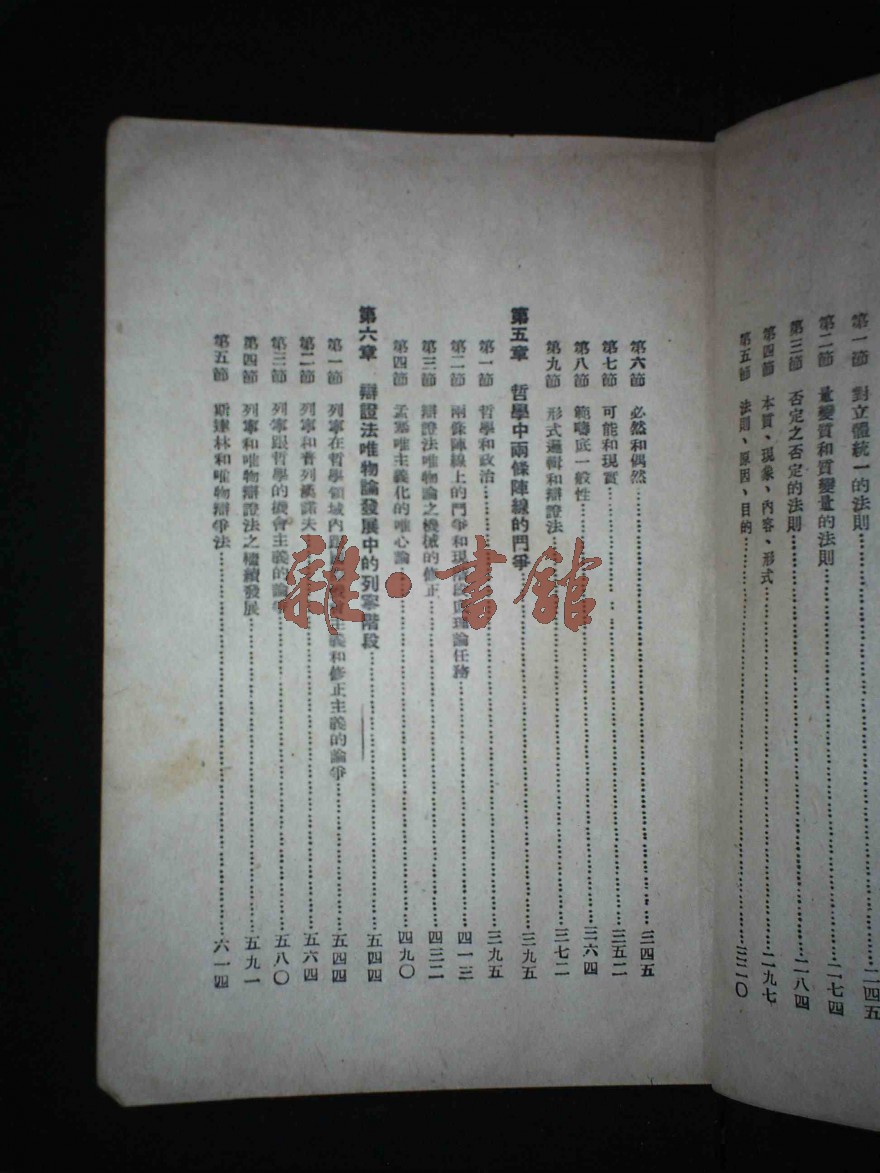 第一節 對立體統一的法則……二四五
第二節 量變質和質變量的法則……二七四
第三節 否定之否定的法則……二八四
第四節 本質、現象、內容、形式……二九七
第五節 法則、原因、目的……三二〇
第六節 必然和偶然……三四五
第七節 可能和現實……三五二
第八節 範疇底一般性……三六四
第九節 形式邏輯和辯證法……三七二
第五章 哲學中兩條陣線的鬥爭……三九五
第一節 哲學和政治……三九五
第二節 兩條陣線上的鬥爭和現階段底理論任務……四一三
第三節 辯證法唯物論之機械的修正……四三二
第四節 孟塞唯主義化的唯心論……四九〇
第六章 辯證法唯物論發展中的列寧階段……五四四
第一節 列寧在哲學領域內 主義和修正主義的論爭……五四四
第二節 列寧和普列漢諾夫……五六四
第三節 列寧跟哲學的機會主義的論爭……五八〇
第四節 列寧和唯物辯證法之繼續發展……五九一
第五節 斯達林和唯物辯爭法……六一四
雜·書館